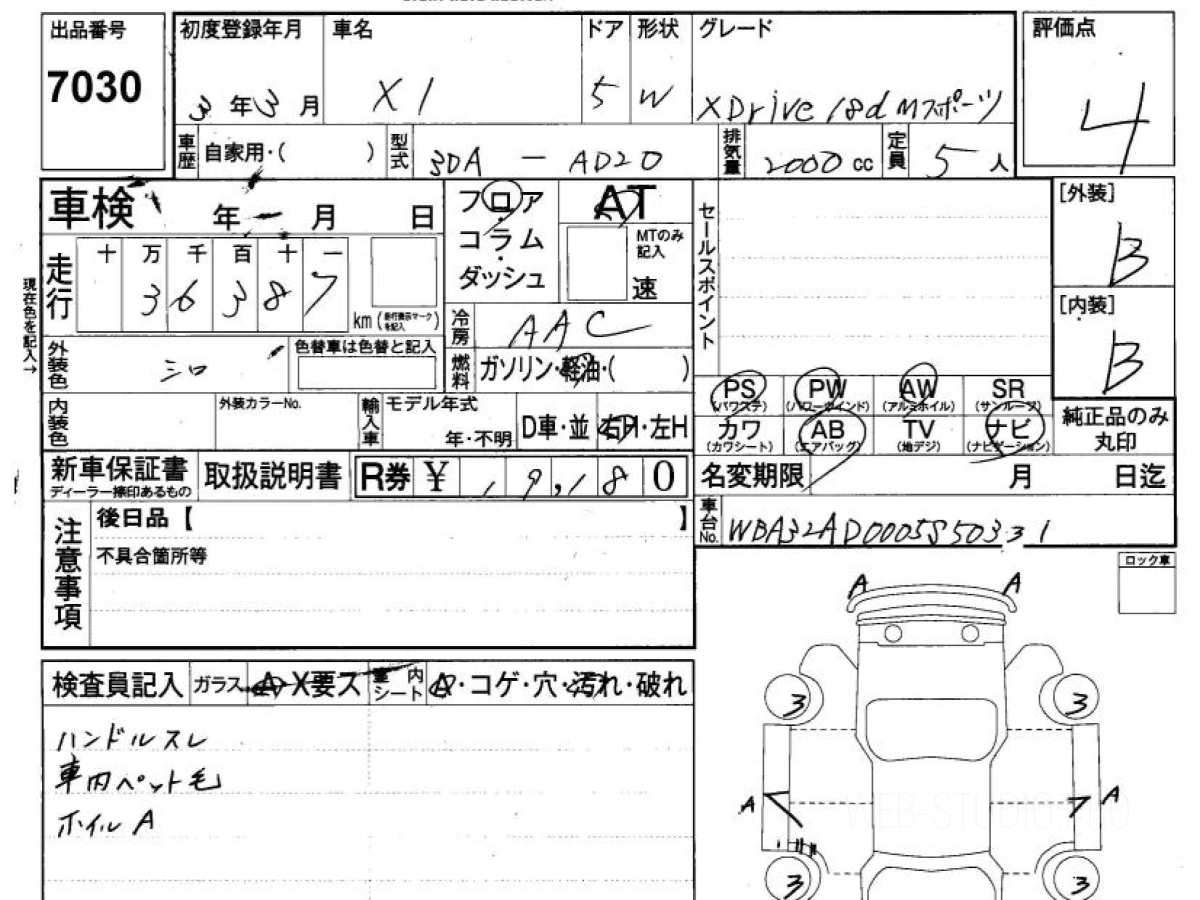 出品番号 初度登録年月 車名 ドア 形状 グレード 評価点
7030 3年3月 X1 5 W XDrive 18d Mスポーツ 4
車歴 自家用・( ) 型式 3DA - AD20 排気量 2000cc 定員 5人
車検 年 月 日 フロア AT セールスポイント [外装]
コラム MTのみ記入 B
ダッシュ 速
走行 十 万 千 百 十 一
3 6 3 8 7 km
現在色を記入→
[内装]
B
冷房 AAC
外装色 シロ 色替車は色替と記入 燃料 ガソリン・軽油・( )
PS (パワステ) PW (パワーウインド) AW (アルミホイル) SR (サンルーフ)
カワ (カワシート) AB (エアバッグ) TV (地デジ) ナビ (ナビゲーション) 純正品のみ丸印
内装色 外装カラーNo. 輸入車 モデル年式 年・不明 D車・並 右H・左H
新車保証書 ディーラー捺印あるもの 取扱説明書 R券 ¥ 1 9,1 8 0 名変期限 月 日迄
車台No. WBA32AD0005S50331
注意事項 後日品【 】
不具合箇所等
ロック車
A A
検査員記入 ガラス A X要ス 室内シート A・コゲ・穴・汚れ・破れ
ハンドルスレ
車内ペット毛
ホイルA
3 3
A A
3 3
WEB-STUDIO.PRO